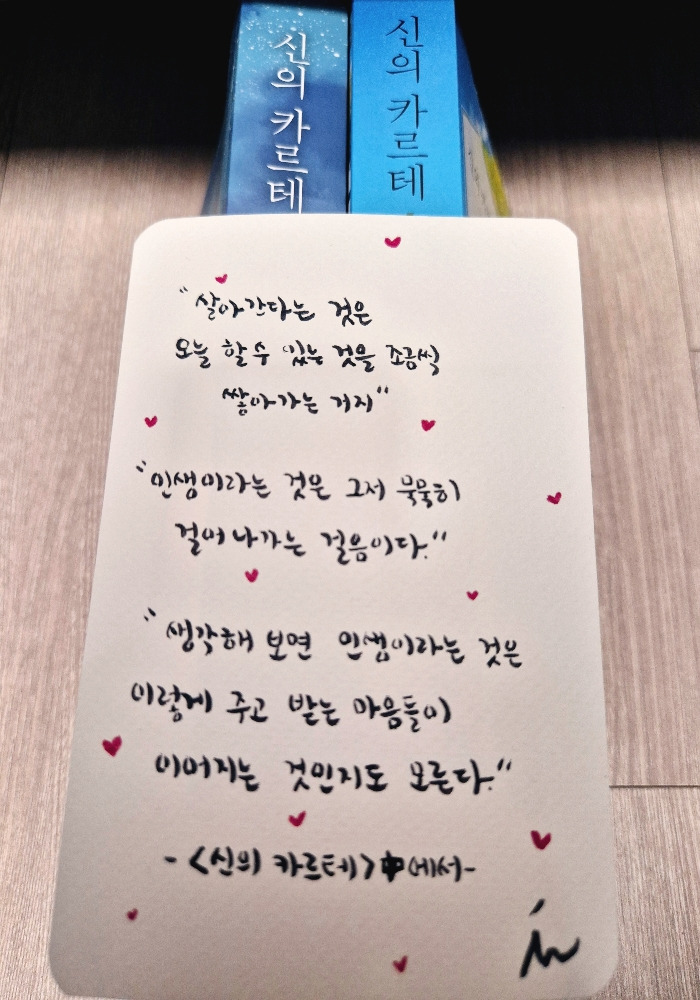 신의 카르테
신의 카르테
"살아간다는 것은
오늘 할 수 있는 것을 조금씩
쌓아가는 거지"
"인생이라는 것은 그저 묵묵히
걸어 나가는 걸음이다."
"생각해 보면 인생이라는 것은
이렇게 주고 받는 마음들이
이어지는 것인지도 모른다."
- <신의 카르테> 中에서-